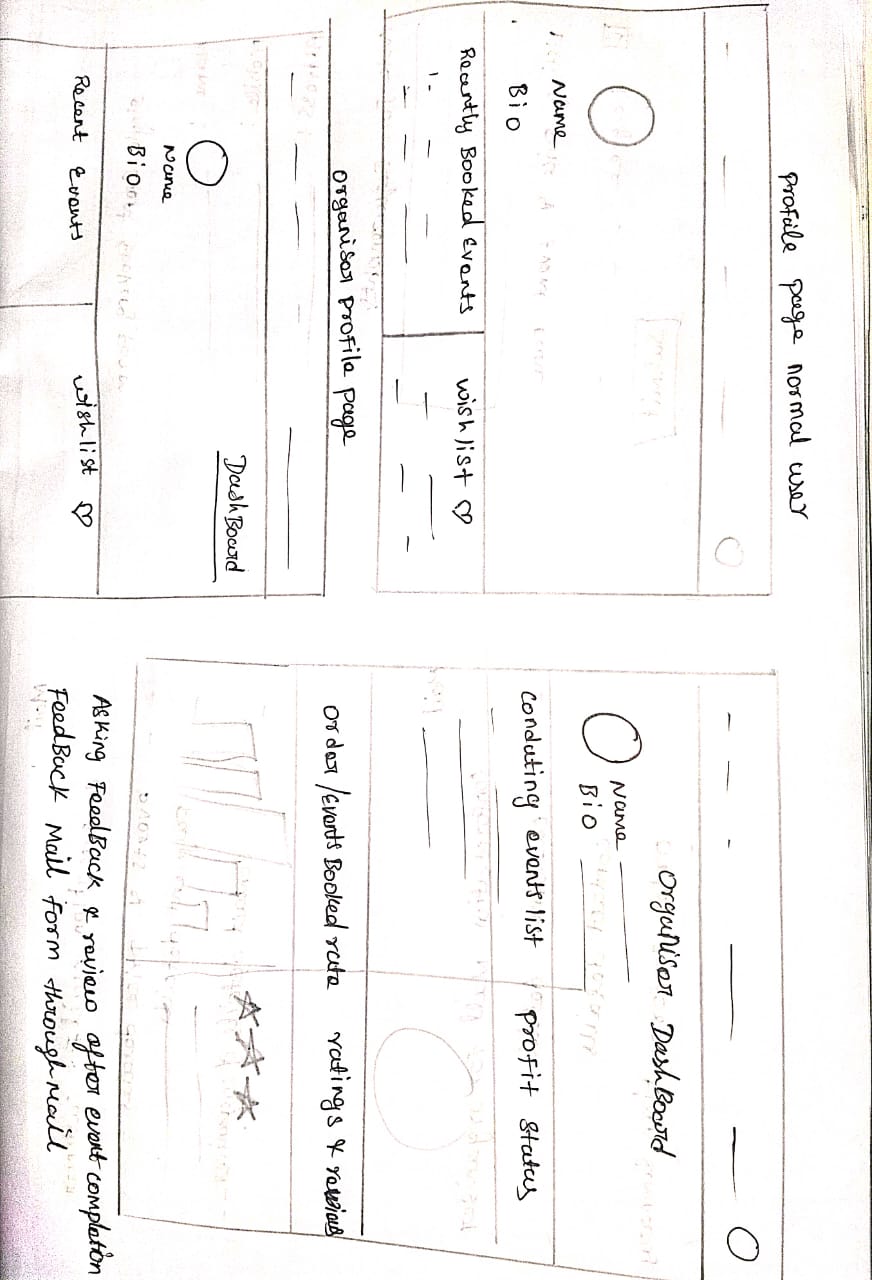 Profile page normal user
Name
Bio
Recently Booked Events
wishlist ♡
1.
Organiser Profile Page
DashBoard
Name
Bio
Recent Events
wishlist ♡
Organiser DashBoard
Name
Bio
conduting events list
Profit Status
Order/Events Booked rate
ratings & reviews
Asking FeedBack & review after event complation
FeedBack Mail form through mail